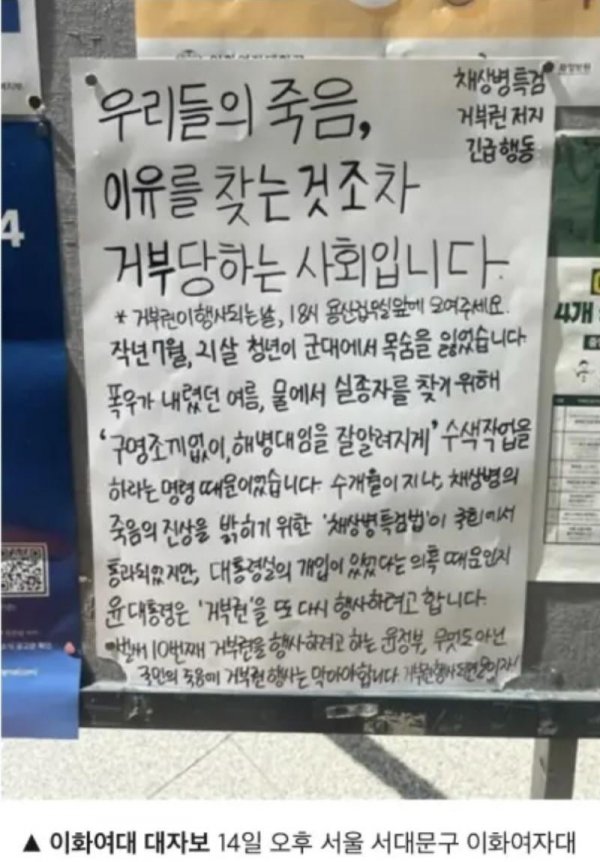 채상병특검
거부권 저지
긴급행동
우리들의 죽음,
이유를 찾는것조차
거부당하는 사회입니다.
* 거부권이 행사되는날, 18시 용산집무실앞에 모여주세요.
작년 7월, 21살 청년이 군대에서 목숨을 잃었습니다.
폭우가 내렸던 여름, 물에서 실종자를 찾기 위해
'구명조끼없이, 해병대임을 잘알려지게' 수색작업을
하라는 명령 때문이었습니다. 수개월이 지나, 채상병의
죽음의 진상을 밝히기 위한 '채상병특검법'이 국회에서
통과되었지만, 대통령실의 개입이 있었다는 의혹 때문인지
윤대통령은 '거부권'을 또 다시 행사하려고 합니다.
벌써 10번째 거부권을 행사하려고 하는 윤정부, 무엇도 아닌
국민의 죽음에 거부권 행사는 막아야합니다
4
4개
▲ 이화여대 대자보 14일 오후 서울 서대문구 이화여자대